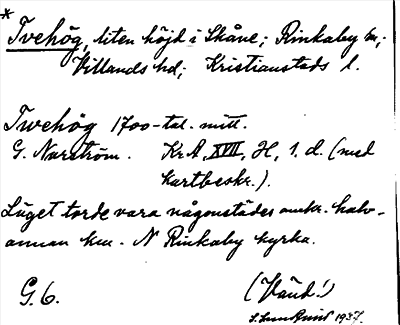 *
Tvehög, liten höjd i Skåne; Rinkaby sn;
Villands hd; Kristianstads l.
Twehög 1700-tal. mitt.
G. Narström. KrA, XVII, H, 1. d. (med
kartbeskr.).
Läget torde vara någonstädes omkr. halv-
annan km. N Rinkaby kyrka.
G. 6. (Vänd!)
1937.